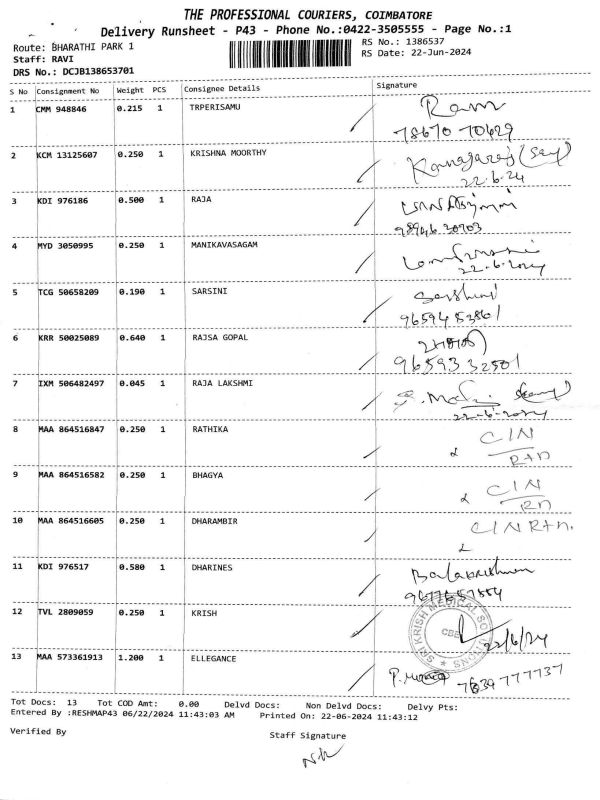 THE PROFESSIONAL COURIERS, COIMBATORE
Delivery Runsheet - P43 - Phone No.:0422-3505555 - Page No.:1
Route: BHARATHI PARK 1
RS No.: 1386537
Staff: RAVI
RS Date: 22-Jun-2024
DRS No.: DCJB138653701
S No Consignment No Weight PCS Consignee Details Signature
1 CMM 948846 0.215 1 TRPERISAMU Ram
78670 70629
2 KCM 13125607 0.250 1 KRISHNA MOORTHY
22.6.24
3 KDI 976186 0.500 1 RAJA
4 MYD 3050995 0.250 1 MANIKAVASAGAM
22.6.2024
5 TCG 50658209 0.190 1 SARSINI
6 KRR 50025089 0.640 1 RAJSA GOPAL
7 IXM 506482497 0.045 1 RAJA LAKSHMI
22-6-2024
8 MAA 864516847 0.250 1 RATHIKA C/N
Rtn
9 MAA 864516582 0.250 1 BHAGYA C/N
Rn
10 MAA 864516605 0.250 1 DHARAMBIR C/N Rtn.
11 KDI 976517 0.580 1 DHARINES Balakrishnan
12 TVL 2809059 0.250 1 KRISH
SRI KRISH MEDICAL SOLUTIONS
CBE
22/6/24
13 MAA 573361913 1.200 1 ELLEGANCE 7639777737
Tot Docs: 13 Tot COD Amt: 0.00 Delvd Docs: Non Delvd Docs: Delvy Pts:
Entered By :RESHMAP43 06/22/2024 11:43:03 AM Printed On: 22-06-2024 11:43:12
Verified By Staff Signature